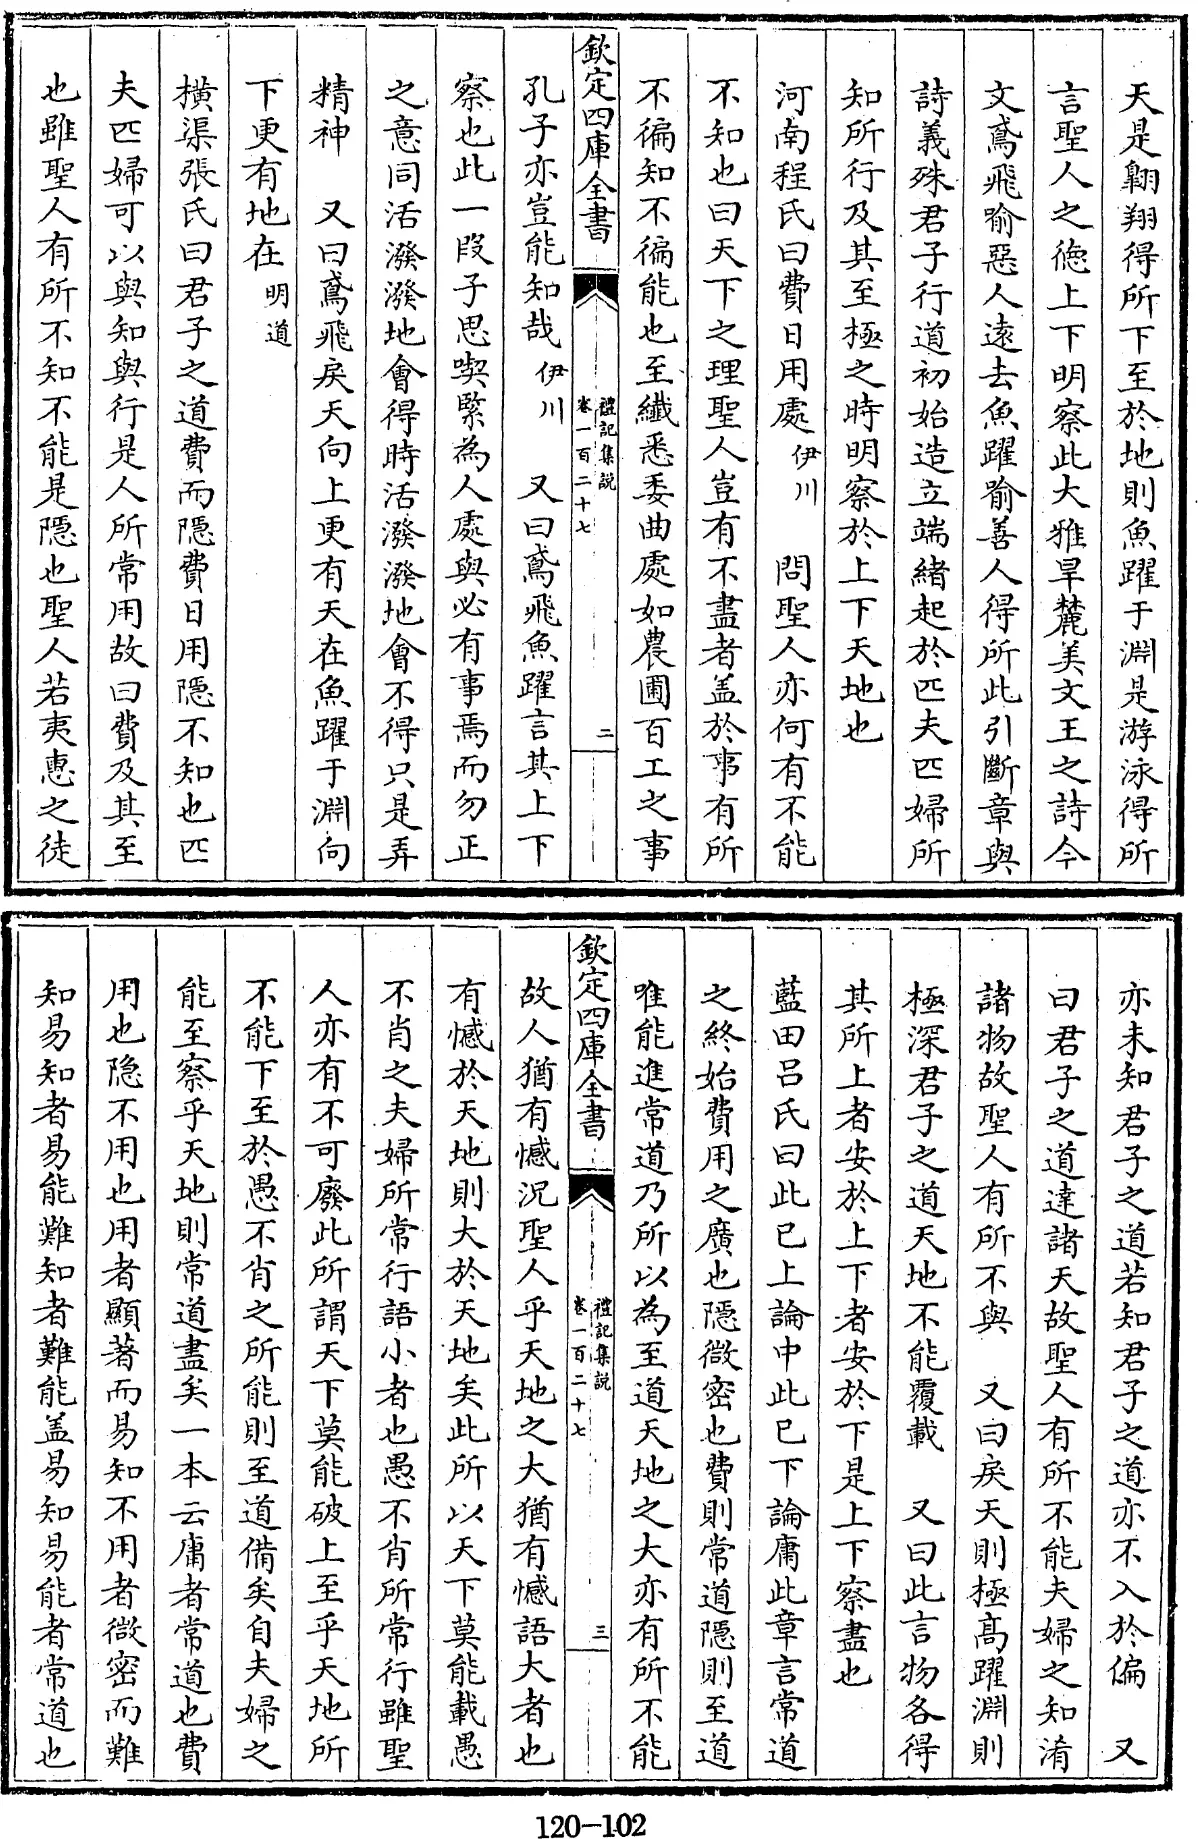 天是翺翔得所下至於地則魚躍于淵是游泳得所
言聖人之徳上下明察此大雅旱麓美文王之詩今
文鳶飛喻惡人逺去魚躍喻善人得所此引斷章與
詩義殊君子行道初始造立端緒起於匹夫匹婦所
知所行及其至極之時明察於上下天地也
河南程氏曰費日用處伊川　問聖人亦何有不能
不知也曰天下之理聖人豈有不盡者盖於事有所
不徧知不徧能也至纎悉委曲處如農圃百工之事
欽定四庫全書　禮記集說　卷一百二十七　二
孔子亦豈能知哉伊川　又曰鳶飛魚躍言其上下
察也此一段子思喫緊為人處與必有事焉而勿正
之意同活潑潑地會得時活潑潑地會不得只是弄
精神　又曰鳶飛戾天向上更有天在魚躍于淵向
下更有地在明道
横渠張氏曰君子之道費而隱費日用隱不知也匹
夫匹婦可以與知與行是人所常用故曰費及其至
也雖聖人有所不知不能是隱也聖人若夷惠之徒
亦未知君子之道若知君子之道亦不入於偏　又
曰君子之道達諸天故聖人有所不能夫婦之知淆
諸物故聖人有所不與　又曰戾天則極髙躍淵則
極深君子之道天地不能覆載　又曰此言物各得
其所上者安於上下者安於下是上下察盡也
藍田吕氏曰此已上論中此已下論庸此章言常道
之終始費用之廣也隱微密也費則常道隱則至道
唯能進常道乃所以為至道天地之大亦有所不能
欽定四庫全書　禮記集說　卷一百二十七　三
故人猶有憾況聖人乎天地之大猶有憾語大者也
有憾於天地則大於天地矣此所以天下莫能載愚
不肖之夫婦所常行語小者也愚不肖所常行雖聖
人亦有不可廢此所謂天下莫能破上至乎天地所
不能下至於愚不肖之所能則至道備矣自夫婦之
能至察乎天地則常道盡矣一本云庸者常道也費
用也隐不用也用者顯著而易知不用者微密而難
知易知者易能難知者難能盖易知易能者常道也
120-102